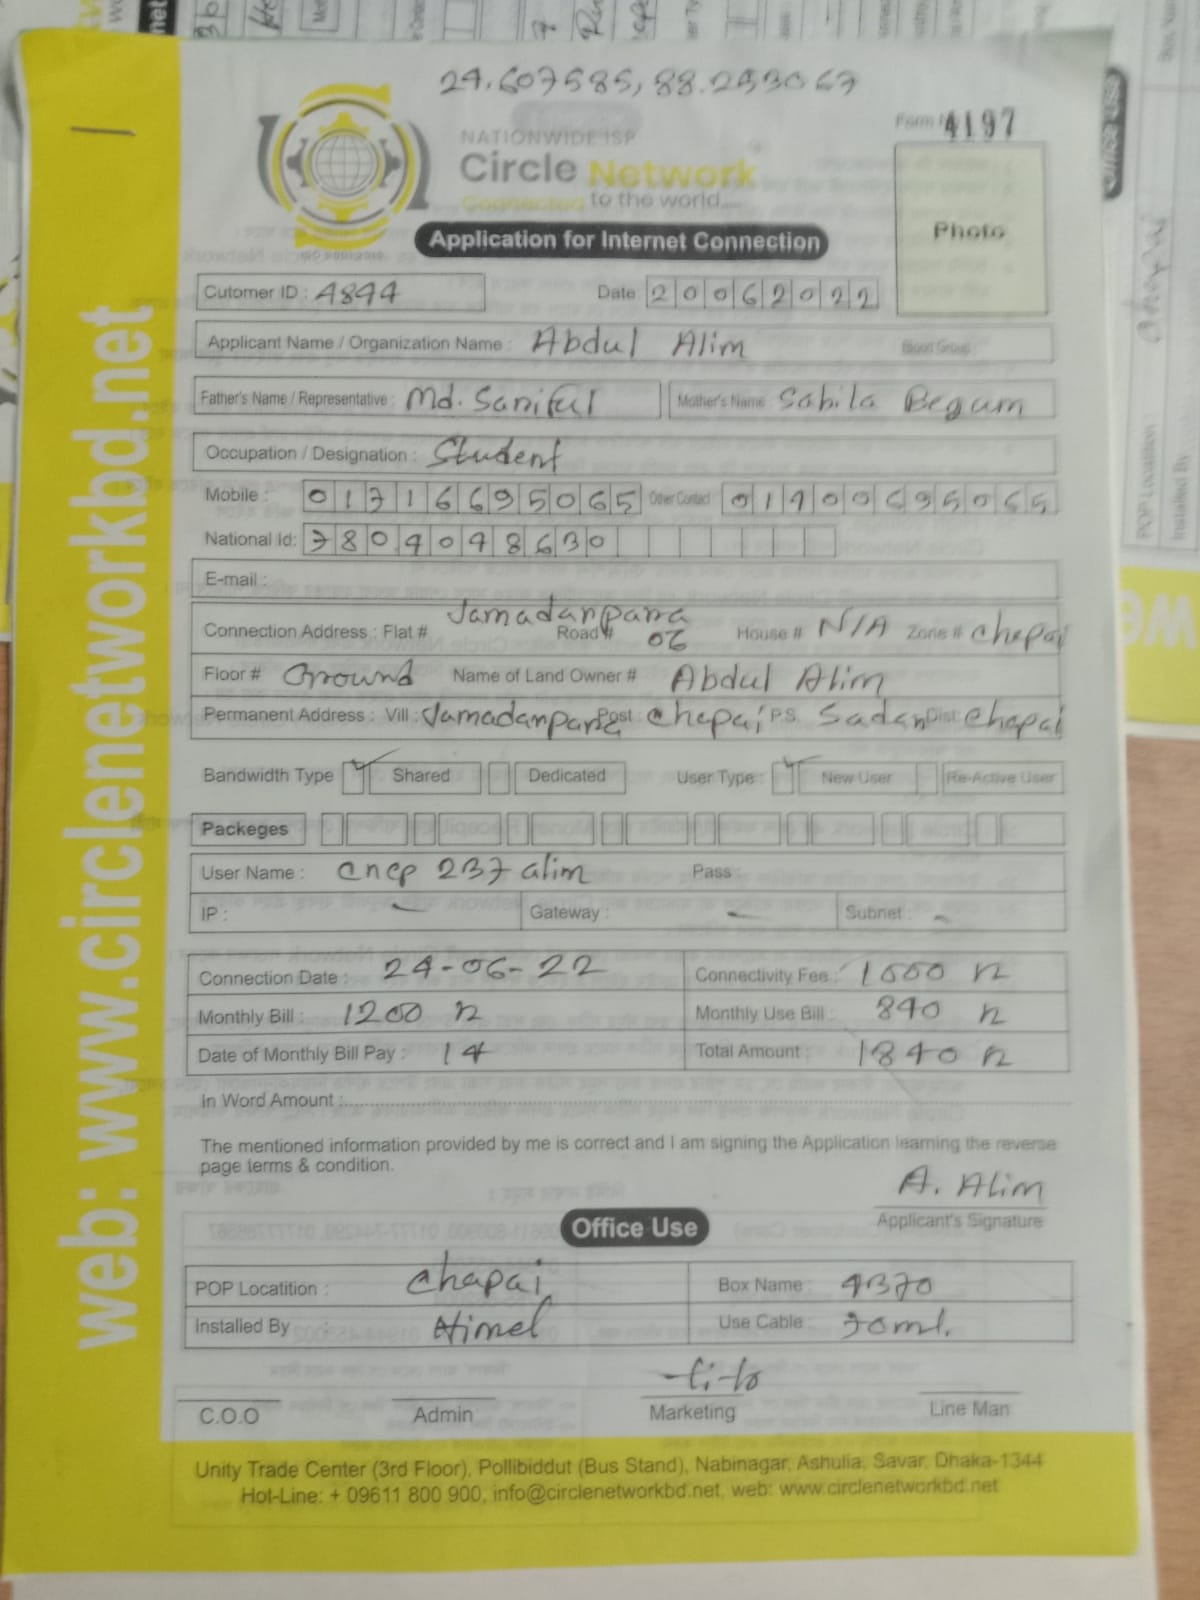 24.607585, 88.253067
Form 4197
NATIONWIDE ISP
Circle Network
Connected to the world....
Photo
Application for Internet Connection
ISO 9001:2015
Cutomer ID : 4894
Date 20062022
Applicant Name / Organization Name : Abdul Alim Blood Group :
Father's Name / Representative : Md. Sariful Mother's Name Sabila Begum
Occupation / Designation : Student
Mobile : 01716695065 Other Contact 01900695065
National Id: 7804098630
E-mail :
Connection Address : Flat # Jamadarpara Road # 06 House # N/A Zone # Chapai
Floor # Ground Name of Land Owner # Abdul Alim
Permanent Address : Vill : Jamadarpara Post : Chapai P.S. Sadar Dist: Chapai
Bandwidth Type Shared Dedicated User Type : New User Re-Active User
Packeges
User Name : cncp 237 alim Pass :
IP : - Gateway : - Subnet : -
Connection Date : 24-06-22 Connectivity Fee : 1000
Monthly Bill : 1200 Monthly Use Bill : 840
Date of Monthly Bill Pay : 14 Total Amount : 1840
In Word Amount :
The mentioned information provided by me is correct and I am signing the Application learning the reverse
page terms & condition.
A. Alim
Applicant's Signature
Office Use
POP Locatition : Chapai Box Name : 4370
Installed By : Himel Use Cable : 70ml.
C.O.O Admin Marketing Line Man
Unity Trade Center (3rd Floor), Pollibiddut (Bus Stand), Nabinagar, Ashulia, Savar, Dhaka-1344
Hot-Line: + 09611 800 900, info@circlenetworkbd.net, web: www.circlenetworkbd.net
web: www.circlenetworkbd.net